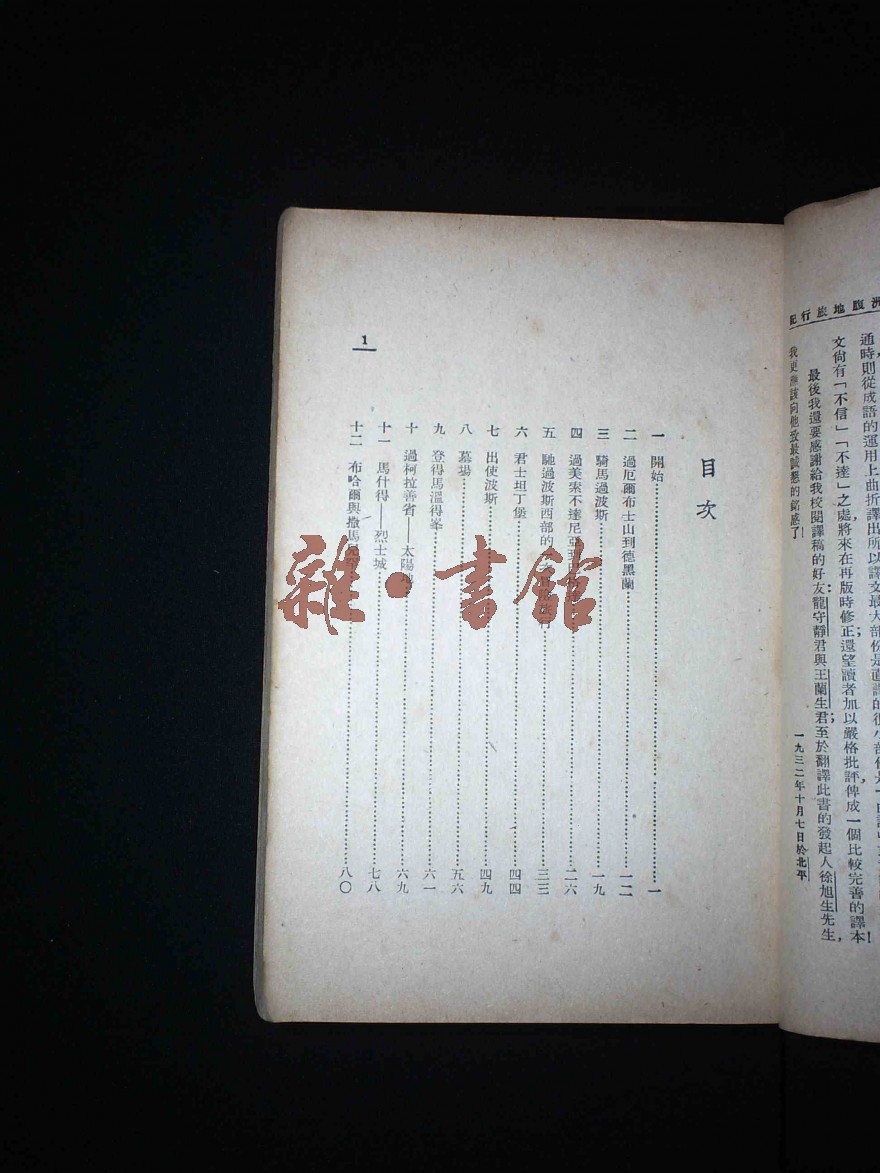 洲腹地旅行記
通時則從成語的運用上曲折譯出所以譯文最大部份是直譯的很小部份是
文尙有「不信」「不達」之處將來在再版時修正還望讀者加以嚴格批評俾成一個比較完善的譯本!
最後我還要感謝給我校閱譯稿的好友龍守靜君與王蘭生君;至於翻譯此書的發起人徐旭生先生,
我更應該向他致最誠懇的銘感了!
一九三二年十月七日於北平
目次
一 開始 一
二 過厄爾布士山到德黑蘭 一二
三 騎馬過波斯 一九
四 過美索不達尼亞到 二六
五 馳過波斯西部的一 三三
六 君士坦丁堡 四四
七 出使波斯 四九
八 墓場 五六
九 登得馬溫得峯 六一
十 過柯拉善省——太陽地 六九
十一 馬什得——烈士城 七八
十二 布哈爾與撒馬 八〇
1
雜·書館